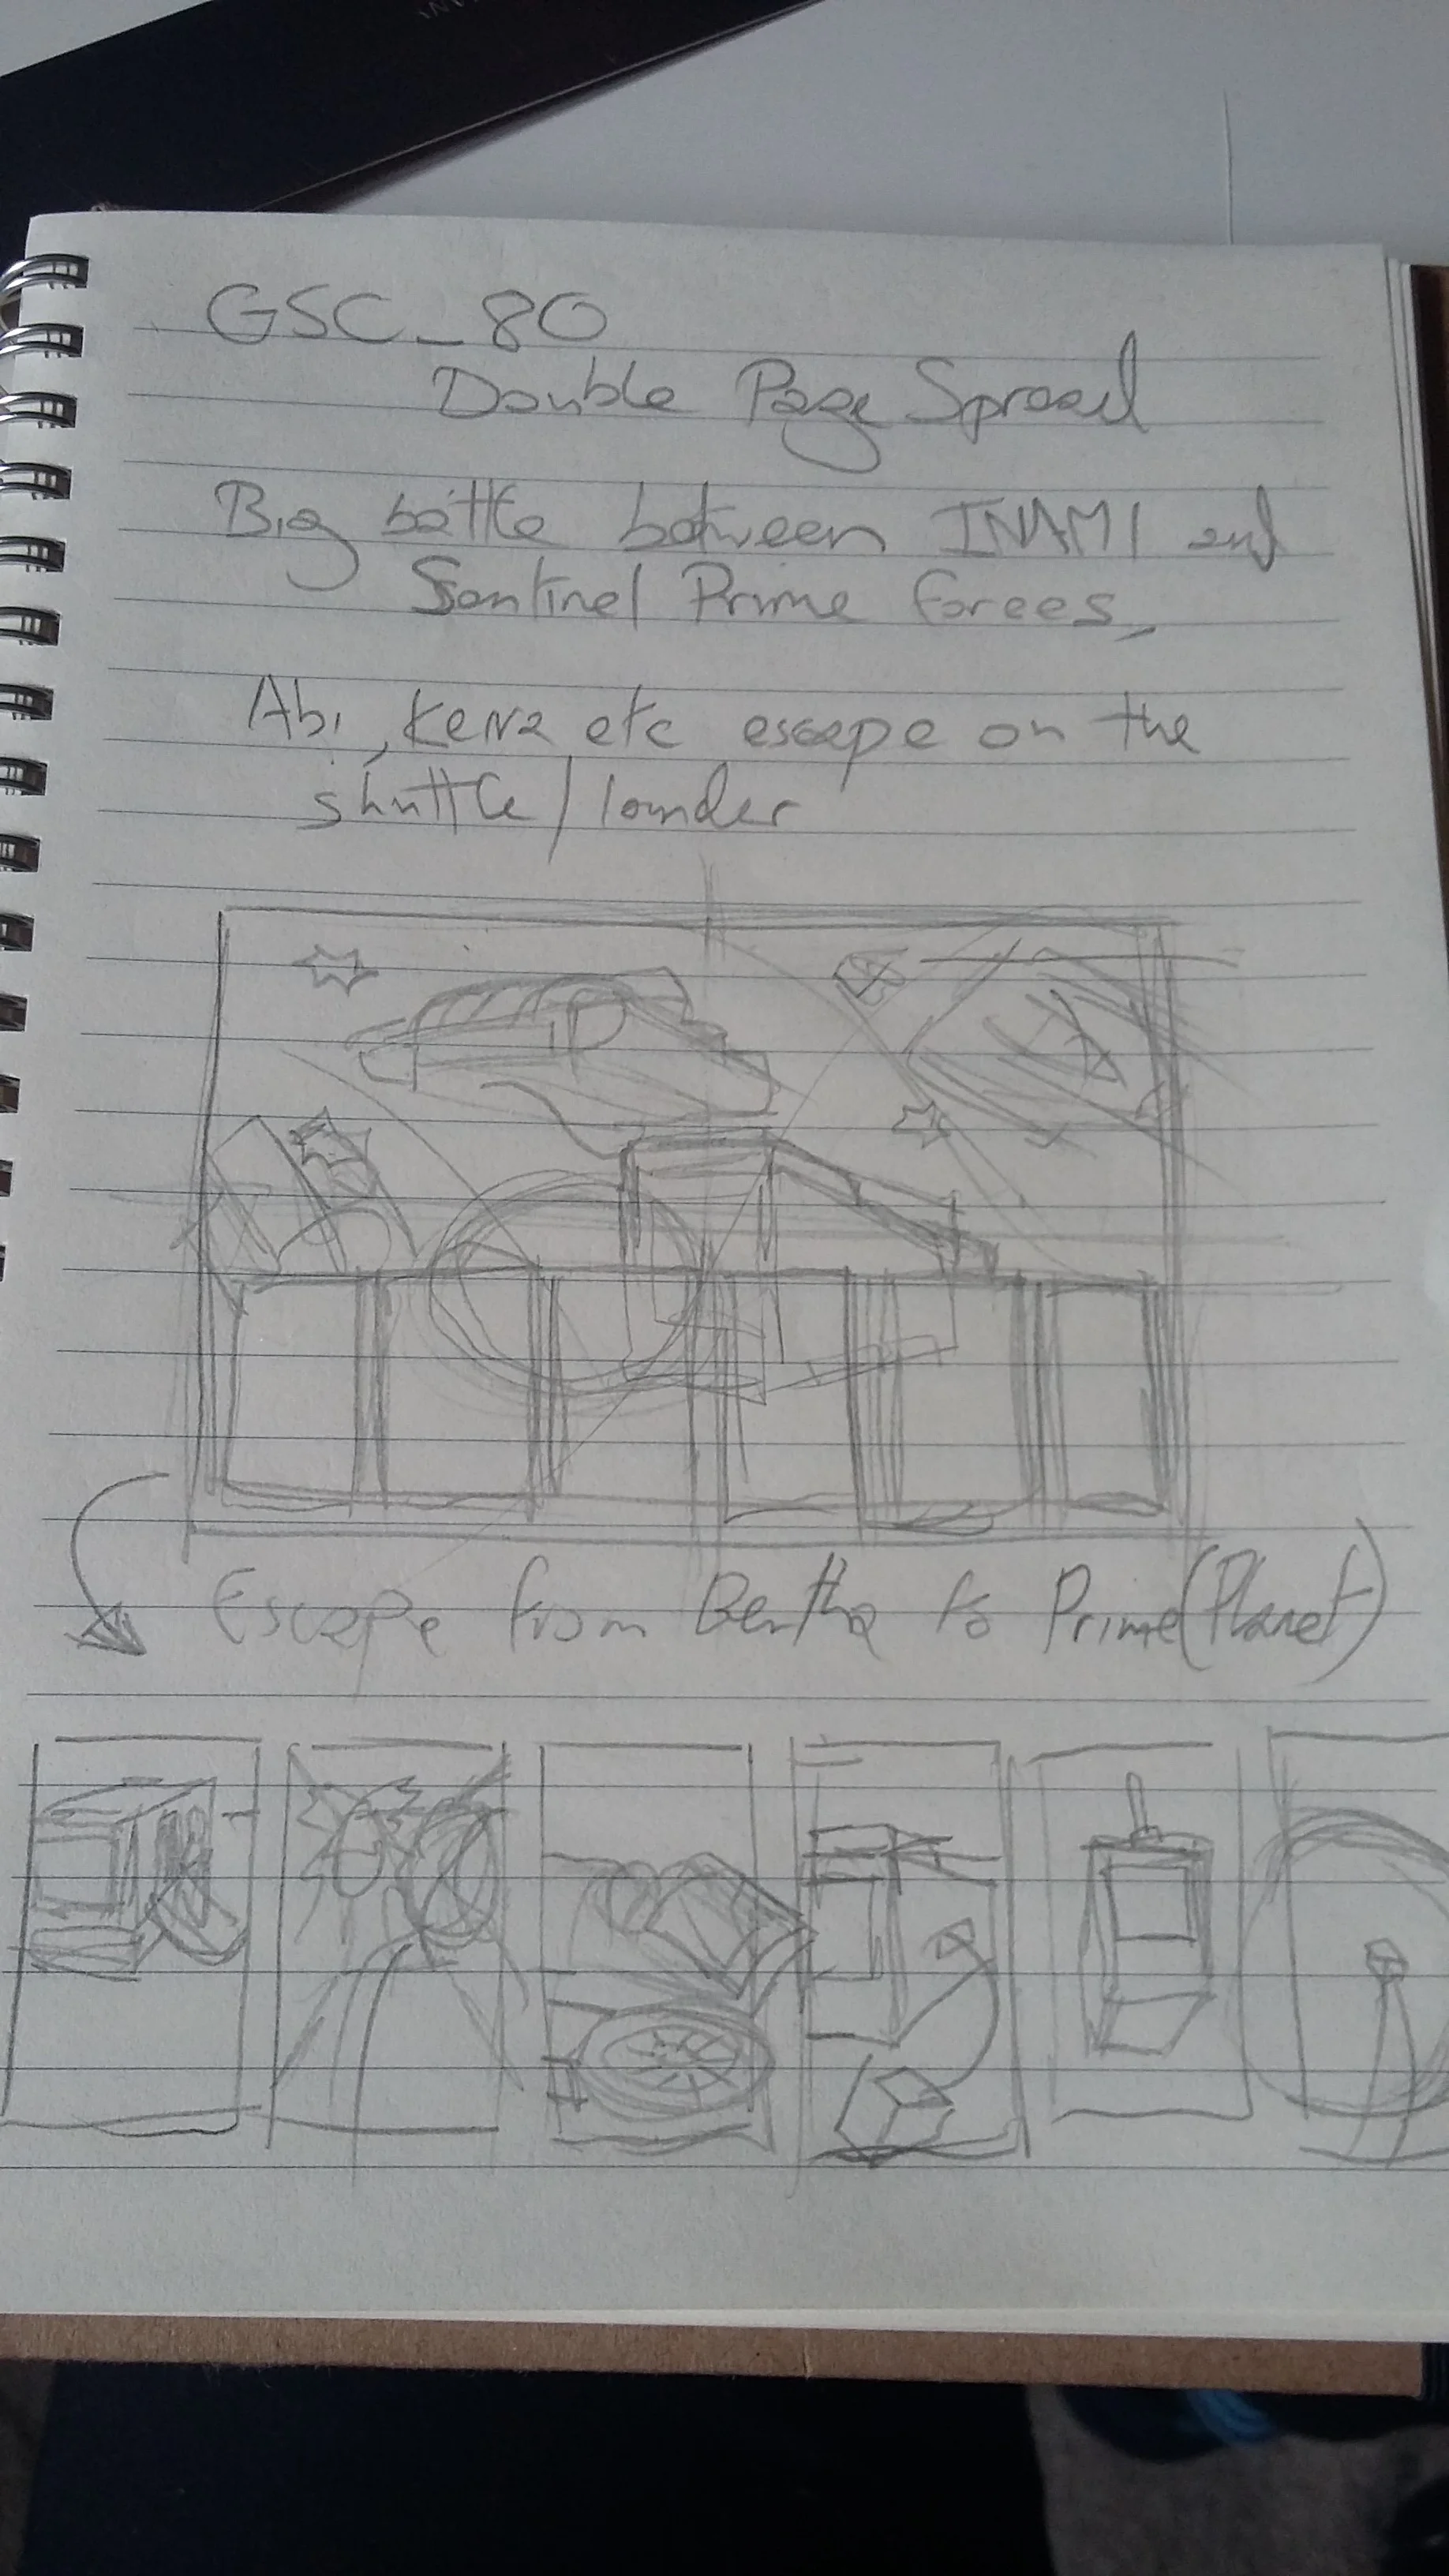 GSC_80
Double Page Spread
Big battle between INAMI and
Sentinel Prime forces,
Abi, Kenz etc escape on the
shuttle/lander
Escape from Bertha to Prime (Planet)